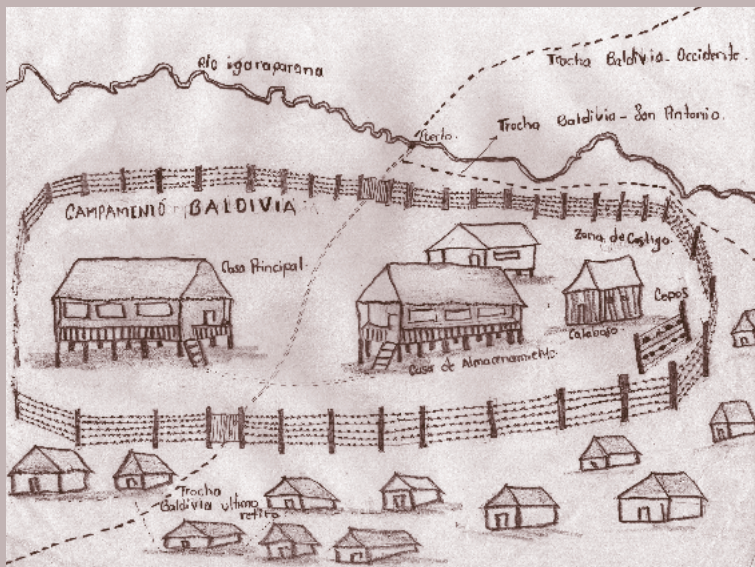 Rio igaraparana
Trocha Baldivia - Occidente.
Puerto.
Trocha Baldivia - San Antonio.
CAMPAMENTO BALDIVIA
Zona de Castigo.
Casa Principal.
Cepos
Calaboso.
Casa de Almacenamiento.
Trocha
Baldivia ultimo
retiro